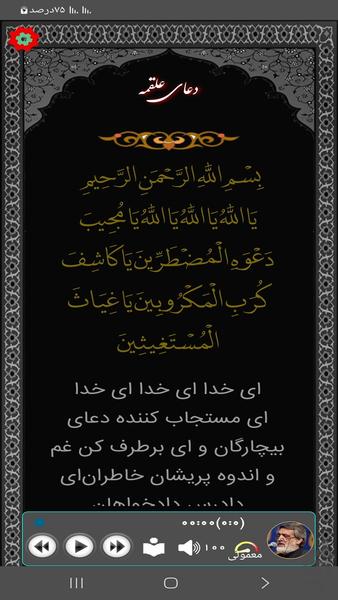 ۷۵درصد
دعای علقمه
بِسْمِ اللّٰهِ الرَّحْمٰنِ الرَّحِيمِ
يَا اللّٰهُ يَا اللّٰهُ يَا اللّٰهُ يَا مُجِيبَ
دَعْوَهِ الْمُضْطَرِّينَ يَا كَاشِفَ
كُرَبِ الْمَكْرُوبِينَ يَا غِيَاثَ
الْمُسْتَغِيثِينَ
ای خدا ای خدا ای خدا
ای مستجاب کننده دعای
بیچارگان و ای برطرف کن غم
و اندوه پریشان خاطران‌ای
دادرس دادخواهان
۰۰:۰۰(۰:۰)
۱۰۰
معمولی